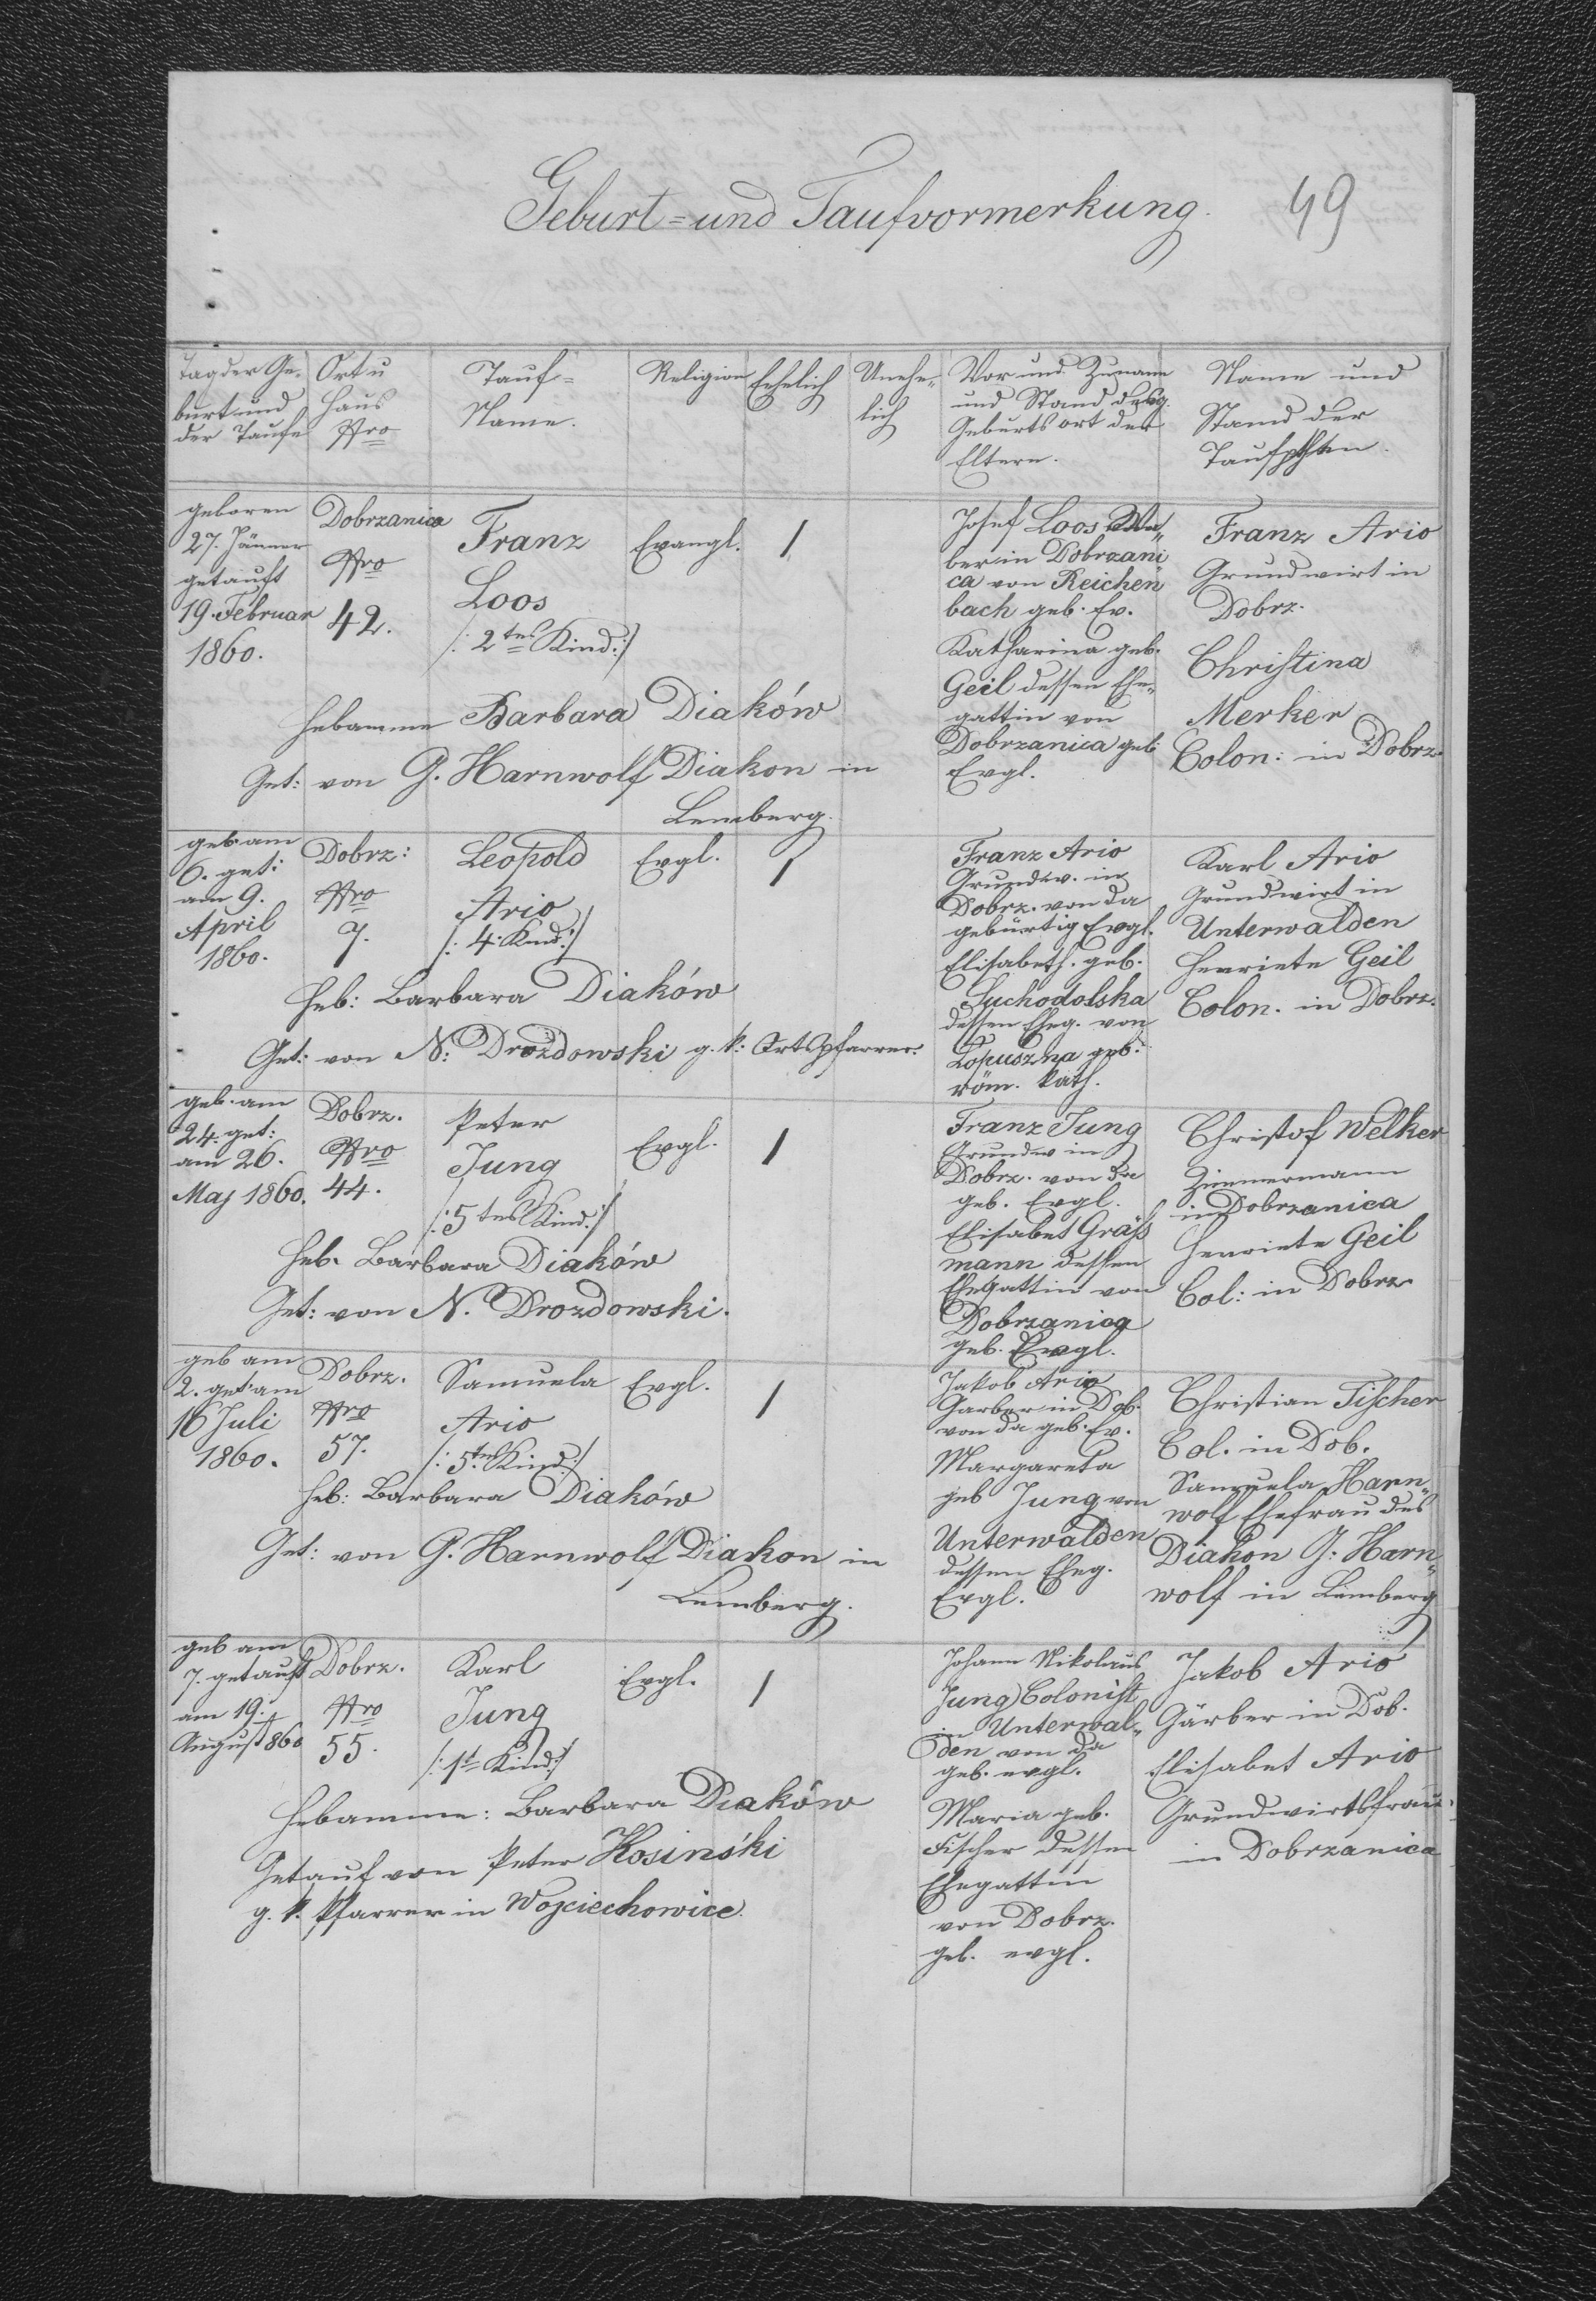 Geburt=und Taufvormerkung.
49
Tag der Ge-
burt und
der Taufe
Ort u
Haus
Nro
Tauf=
Name.
Religion
Eehelich
Unehe-
lich
Vor und Zuname
und Stand
Geburtsort der
Eltern.
Name und
Stand der
Taufpathen.
geboren
27. Jänner
getauft
19. Februar
1860.
Dobrzanica
Nro
42.
Franz
Loos
/: 2tes Kind :/
Evangl.
1
Josef Loos We-
ber in Dobrzani
ca von Reichen
bach geb. Ev.
Katharina geb.
Geil dessen Ehe-
gattin von
Dobrzanica geb.
Evgl.
Franz Ario
Grundwirt in
Dobrz.
Christina
Merker
Colon: in Dobrz.
Hebamme Barbara Diaków
Get: von G. Harnwolf Diakon in
Lemberg.
geb am
6. get:
am 9.
April
1860.
Dobrz:
Nro
7.
Leopold
Ario
/: 4. Kind :/
Evgl.
1
Franz Ario
Grundw. in
Dobrz. von da
gebürtig Evgl.
Elisabeth. geb.
Suchodolska
dessen Eheg. von
Łopuszna geb:
röm. kath.
Karl Ario
Grundwirt in
Unterwalden
Henriete Geil
Colon. in Dobrz.
Heb: Barbara Diaków
Get: von N: Drozdowski g. k: Ortspfarrer.
geb. am
24. get:
am 26.
Maj 1860.
Dobrz.
Nro
44.
Peter
Jung
/: 5tes Kind :/
Evgl.
1
Franz Jung
Grundw in
Dobrz. von da
geb. Evgl.
Elisabet Gräß
mann dessen
Ehegattin von
Dobrzanica
geb. Evgl.
Christof Welker
Zimmermann
in Dobrzanica
Henriete Geil
Col: in Dobrz.
Heb. Barbara Diaków
Get: von N. Drozdowski.
geb am
2. get am
16 Juli
1860.
Dobrz.
Nro
57.
Samuela
Ario
/: 5tes Kind :/
Evgl.
1
Jakob Ario
Garber in Dob.
von da geb. Ev.
Margareta
geb Jung von
Unterwalden
dessen Eheg.
Evgl.
Christian Fischer
Col. in Dob.
Samuela Harn-
wolf Ehefrau des
Diakon G. Harn-
wolf in Lemberg
Heb: Barbara Diaków
Get: von G. Harnwolf Diakon in
Lemberg.
geb am
7. getauft
am 19.
August 860
Dobrz.
Nro
55.
Karl
Jung
/: 1t Kind :/
Evgl.
1
Johann Nikolaus
Jung Colonist
in Unterwal-
den von da
geb. evgl.
Maria geb.
Fischer dessen
Ehegattin
von Dobrz.
geb. evgl.
Jakob Ario
Gärber in Dob.
Elisabet Ario
Grundwirtsfrau
in Dobrzanica
Hebamme: Barbara Diaków
Getauf von Peter Kosiński
g. k. Pfarrer in Wojciechowice.